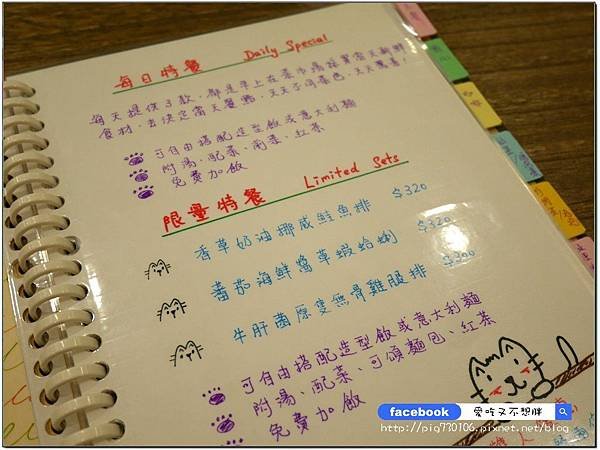 每日特餐 Daily Special
每天提供3款,都是早上在菜市場採買當天新鮮
食材,去決定當天餐點,天天不同菜色,天天驚喜!
可自由搭配造型飯或意大利麵
附湯、配菜、甜菜、紅茶
免費加飯
限量特餐 Limited Sets
香草奶油挪威鮭魚排 $320
蕃茄海鮮醬草蝦蛤蜊 $320
牛肝菌原隻無骨雞腿排 $300
可自由搭配造型飯或意大利麵
附湯、配菜、可頌麵包、紅茶
免費加飯
facebook 愛吃又不想胖
http://pig730106.pixnet.net/blog